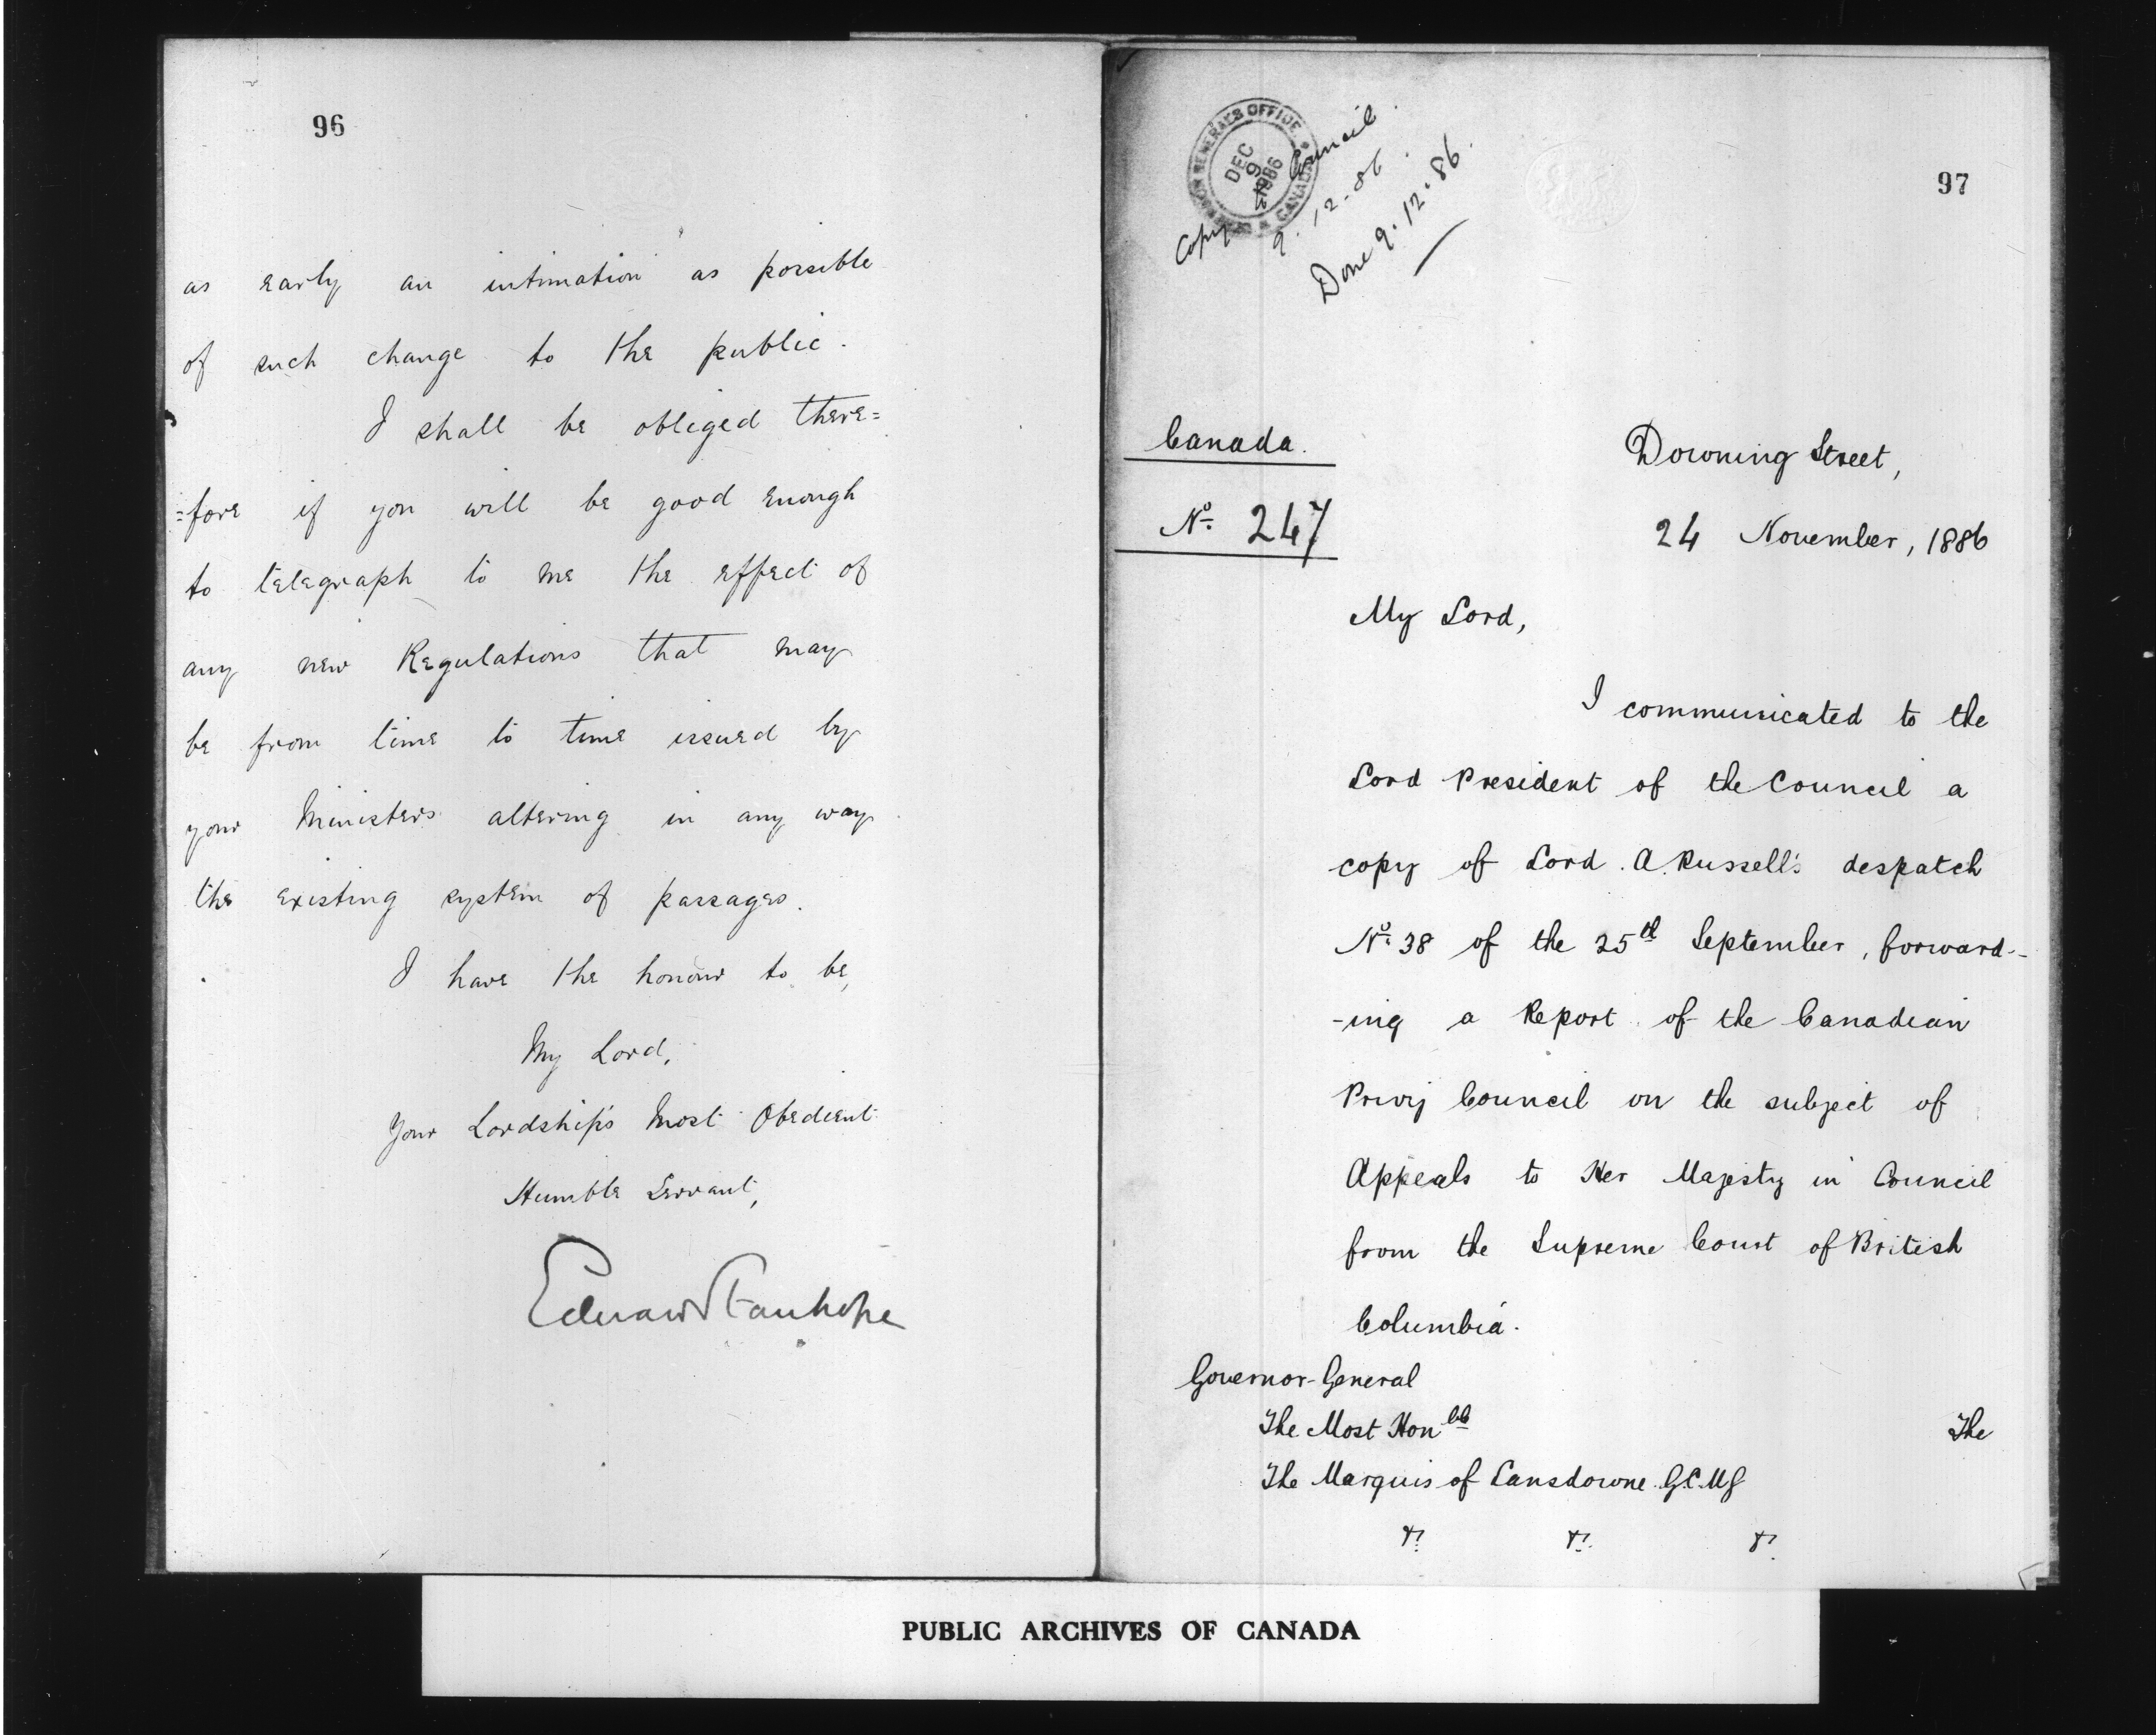 96
as early an intimation as possible
of such change to the public.
I shall be obliged there=
=fore if you will be good enough
to telegraph to me the effect of
any new Regulations that may
be from time to time issued by
your Ministers altering in any way
the existing system of passages.
I have the honour to be,
My Lord,
Your Lordship's Most Obedient
Humble Servant,
Edward Stanhope
97
GOVERNOR GENERAL'S OFFICE
DEC
9
1886
CANADA
Copy Council
9.12.86.
Done 9.12.86.
Canada.
No. 247
Downing Street,
24 November, 1886
My Lord,
I communicated to the
Lord President of the Council a
copy of Lord A. Russell's despatch
No. 38 of the 25th September, forward-
-ing a Report of the Canadian
Privy Council on the subject of
Appeals to Her Majesty in Council
from the Supreme Court of British
Columbia.
Governor-General
The Most Honble
The Marquis of Lansdowne. G.C.M.G
&c. &c. &c.
The
PUBLIC ARCHIVES OF CANADA